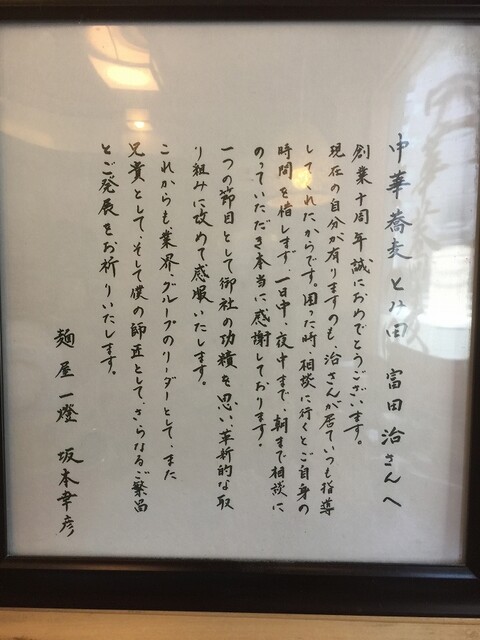 中華蕎麦 とみ田 富田 治さんへ
創業十周年誠におめでとうございます。
現在の自分が有りますのも、治さんが居ていつも指導
してくれたからです。困った時、相談に行くとご自身の
時間を惜しまず、一日中、夜中まで、朝まで相談に
のっていただき本当に感謝しております。
一つの節目として御社の功積を思い、革新的な取
り組みに改めて感服いたします。
これからも業界・グループのリーダーとして、また
兄貴として、そして僕の師匠として、さらなるご繁昌
とご発展をお祈りいたします。
麺屋一燈 坂本幸彦